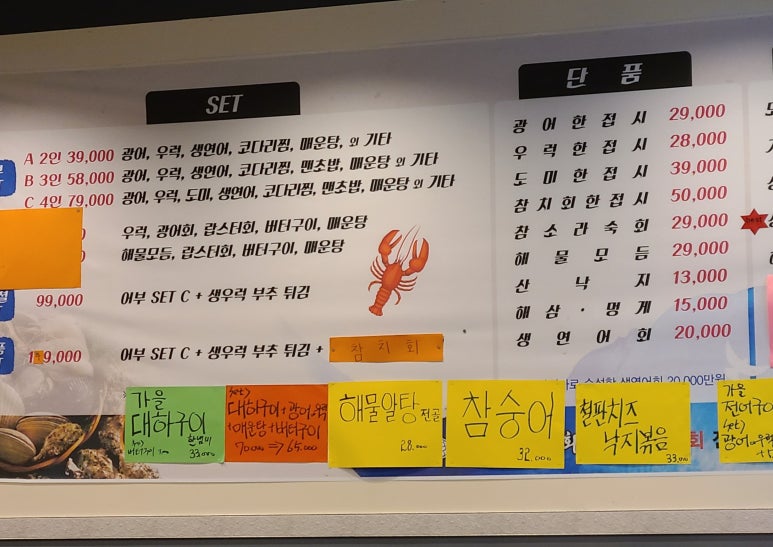 SET
A 2인 39,000 광어, 우럭, 생연어, 코다리찜, 매운탕, 외 기타
B 3인 58,000 광어, 우럭, 생연어, 코다리찜, 맨초밥, 매운탕 외 기타
C 4인 79,000 광어, 우럭, 도미, 생연어, 코다리찜, 맨초밥, 매운탕 외 기타
우럭, 광어회, 랍스터회, 버터구이, 매운탕
해물모듬, 랍스터회, 버터구이, 매운탕
99,000 어부 SET C + 생우럭 부추 튀김
9,000 어부 SET C + 생우럭 부추 튀김 + 참치회
단품
광어한접시 29,000
우럭한접시 28,000
도미한접시 39,000
참치회한접시 50,000
참소라숙회 29,000
해물모듬 29,000
산낙지 13,000
해삼·멍게 15,000
생연어회 20,000
생연어회 20,000만원
가을
대하구이
한냄비
33,000
대하구이+광어+우럭
+매운탕+버터구이
70,000 => 65,000
해물알탕 전골
28,000
참숭어
32,000
철판치즈
낙지볶음
33,000
가을
전어구이
광어+우럭